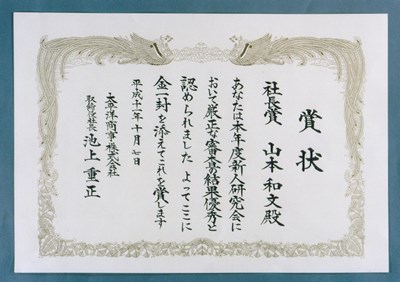 賞状
社長賞 山本 和文殿
あなたは本年度新人研究会に
おいて厳正な審査の結果優秀と
認められました よってここに
金一封を添えてこれを賞します
平成十一年十月七日
太平洋商事株式会社
取締役社長 池上 重正